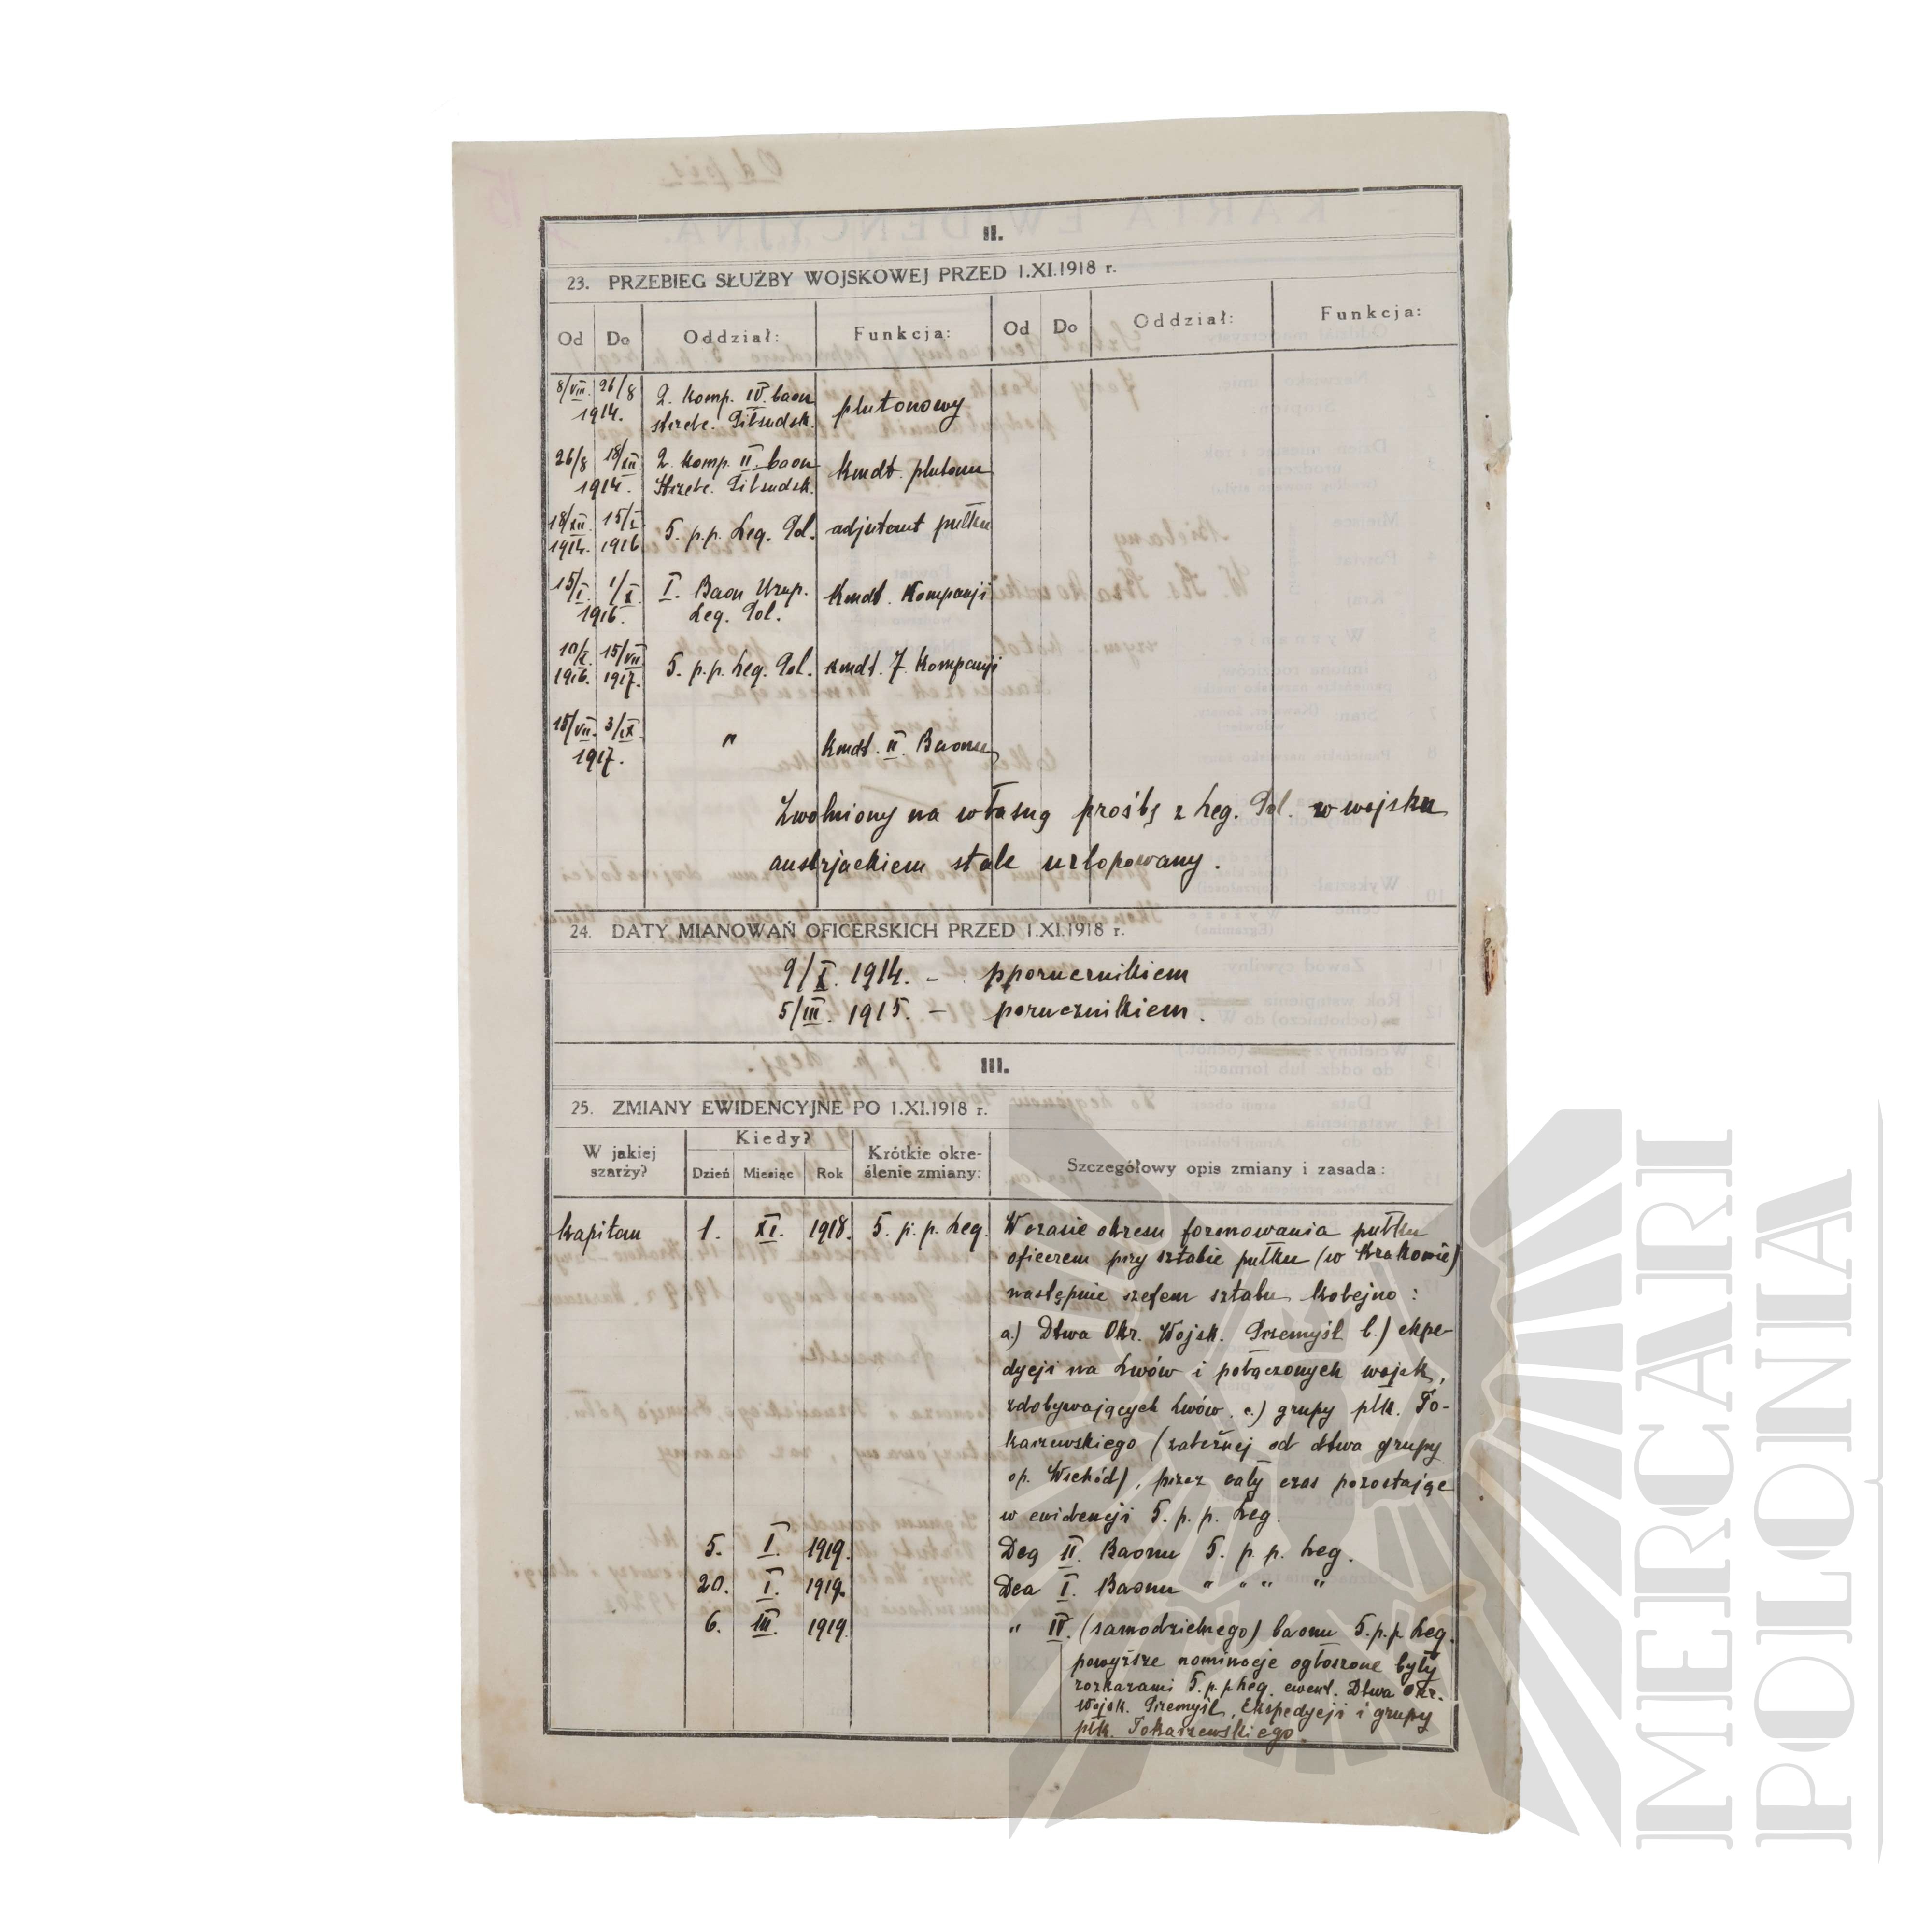 II.
23. PRZEBIEG SŁUŻBY WOJSKOWEJ PRZED 1.XI.1918 r.
Od Do Oddział: Funkcja: Od Do Oddział: Funkcja:
8/VIII. 26/8 1914. 2. komp. IV. baon strzelc. Piłsudsk. plutonowy
26/8 18/XII 1914. 2. komp. II. baon Strzelc. Piłsudsk. kmdt. plutonu
18/XII 1914. 15/I. 1916 5. p.p. Leg. Pol. adjutant pułku
15/I. 1/X. 1916. I. Baon Uzup. Leg. Pol. Kmdt. Kompanji
10/X. 1916. 15/VII 1917. 5. p.p. Leg. Pol. kmdt. 7. kompanji
15/VII. 3/IX. 1917. " Kmdt. II. Baonu
Zwolniony na własną prośbę z Leg. Pol. w wojsku
austrjackiem stale urlopowany.
24. DATY MIANOWAŃ OFICERSKICH PRZED 1.XI.1918 r.
9/X. 1914. - pporucznikiem
5/III. 1915. - porucznikiem.
III.
25. ZMIANY EWIDENCYJNE PO 1.XI.1918 r.
W jakiej szarży? Kiedy? Dzień Miesiąc Rok Krótkie okre-ślenie zmiany: Szczegółowy opis zmiany i zasada:
kapitan 1. XI. 1918. 5. p. p. Leg. W czasie okresu formowania pułku
oficerem przy sztabie pułku (w Krakowie)
następnie szefem sztabu kolejno:
a.) Dtwa Okr. Wojsk. Przemyśl b.) ekspe-
dycji na Lwów i połączonych wojsk,
zdobywających Lwów. c.) grupy płk. To-
karzewskiego (zależnej od dtwa grupy
op. Wschód), przez cały czas pozostając
w ewidencji 5. p. p. Leg.
5. I. 1919. Dcą II. Baonu 5. p. p. Leg.
20. I. 1919. Dca I. Baonu " " " "
6. III. 1919. " IV. (samodzielnego) baonu 5. p. p. Leg.
powyższe nominacje ogłoszone były
rozkazami 5. p. p Leg. ewent. Dtwa Okr.
Wojsk. Przemyśl, Ekspedycji i grupy
płk. Tokarzewskiego.
MERCARI
POLONIA